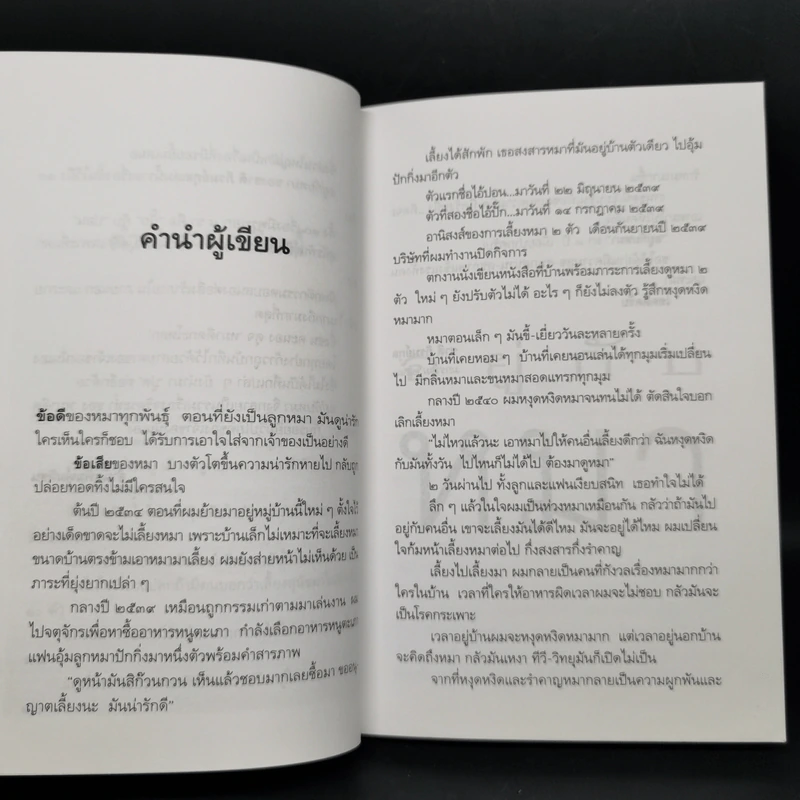 คำนำผู้เขียน
ข้อดีของหมาทุกพันธุ์ ตอนที่ยังเป็นลูกหมา มันดูน่ารัก
ใครเห็นใครก็ชอบ ได้รับการเอาใจใส่จากเจ้าของเป็นอย่างดี
ข้อเสียของหมา บางตัวโตขึ้นความน่ารักหายไป กลับถูก
ปล่อยทอดทิ้งไม่มีใครสนใจ
ต้นปี ๒๕๓๔ ตอนที่ผมย้ายมาอยู่หมู่บ้านนี้ใหม่ ๆ ตั้งใจไว้
อย่างเด็ดขาดจะไม่เลี้ยงหมา เพราะบ้านเล็กไม่เหมาะที่จะเลี้ยงหมา
ขนาดบ้านตรงข้ามเอาหมามาเลี้ยง ผมยังส่ายหน้าไม่เห็นด้วย เป็น
ภาระที่ยุ่งยากเปล่า ๆ
กลางปี ๒๕๓๙ เหมือนถูกกรรมเก่าตามมาเล่นงาน ผม
ไปจตุจักรเพื่อหาซื้ออาหารหนูตะเภา กำลังเลือกอาหารหนูตะเภา
แฟนอุ้มลูกหมาปักกิ่งมาหนึ่งตัวพร้อมคำสารภาพ
"ดูหน้ามันสิก๊วนกวน เห็นแล้วชอบมากเลยซื้อมา ขออนุ
ญาตเลี้ยงนะ มันน่ารักดี"
เลี้ยงได้สักพัก เธอสงสารหมาที่มันอยู่บ้านตัวเดียว ไปอุ้ม
ปักกิ่งมาอีกตัว
ตัวแรกชื่อไอ้ปอน...มาวันที่ ๒๒ มิถุนายน ๒๕๓๙
ตัวที่สองชื่อไอ้ปั๊ก...มาวันที่ ๑๔ กรกฎาคม ๒๕๓๙
อานิสงส์ของการเลี้ยงหมา ๒ ตัว เดือนกันยายนปี ๒๕๓๙
บริษัทที่ผมทำงานปิดกิจการ
ตกงานนั่งเขียนหนังสือที่บ้านพร้อมภาระการเลี้ยงดูหมา ๒
ตัว ใหม่ ๆ ยังปรับตัวไม่ได้ อะไร ๆ ก็ยังไม่ลงตัว รู้สึกหงุดหงิด
หมามาก
หมาตอนเล็ก ๆ มันขี้-เยี่ยววันละหลายครั้ง
บ้านที่เคยหอม ๆ บ้านที่เคยนอนเล่นได้ทุกมุมเริ่มเปลี่ยน
ไป มีกลิ่นหมาและขนหมาสอดแทรกทุกมุม
กลางปี ๒๕๔๐ ผมหงุดหงิดหมาจนทนไม่ได้ ตัดสินใจบอก
เลิกเลี้ยงหมา
"ไม่ไหวแล้วนะ เอาหมาไปให้คนอื่นเลี้ยงดีกว่า ฉันหงุดหงิด
กับมันทั้งวัน ไปไหนก็ไม่ได้ไป ต้องมาดูหมา"
๒ วันผ่านไป ทั้งลูกและแฟนเงียบสนิท เธอทำใจไม่ได้
ลึก ๆ แล้วในใจผมเป็นห่วงหมาเหมือนกัน กลัวว่าถ้ามันไป
อยู่กับคนอื่น เขาจะเลี้ยงมันได้ดีไหม มันจะอยู่ได้ไหม ผมเปลี่ยน
ใจก้มหน้าเลี้ยงหมาต่อไป กึ่งสงสารกึ่งรำคาญ
เลี้ยงไปเลี้ยงมา ผมกลายเป็นคนที่กังวลเรื่องหมามากกว่า
ใครในบ้าน เวลาที่ใครให้อาหารผิดเวลาผมจะไม่ชอบ กลัวมันจะ
เป็นโรคกระเพาะ
เวลาอยู่บ้านผมจะหงุดหงิดหมามาก แต่เวลาอยู่นอกบ้าน
จะคิดถึงหมา กลัวมันเหงา ทีวี-วิทยุมันก็เปิดไม่เป็น
จากที่หงุดหงิดและรำคาญหมากลายเป็นความผูกพันและ